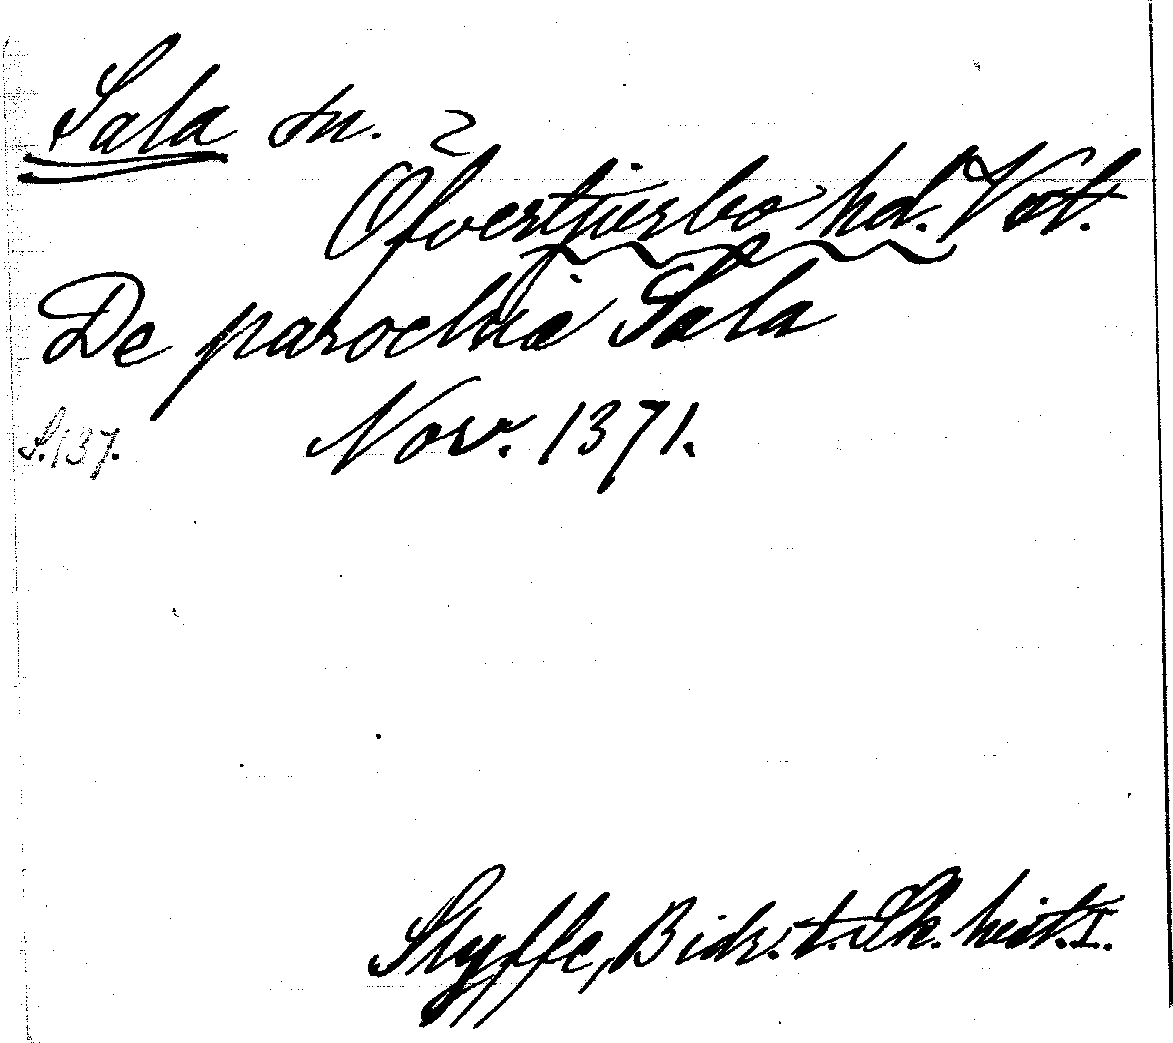 Sala sn. 2
Öfvertjurbo hd. Vstm.
De parochia Sala
S. 137. Nov. 1371.
Styffe, Bidr. t. Sk. hist. I.